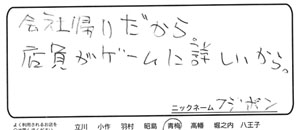 会社帰りだから。
店員がゲームに詳しいから。
ニックネーム フジポン
よく利用されるお店を
立川 小作 羽村 昭島 青梅 高幡 堀之内 八王子